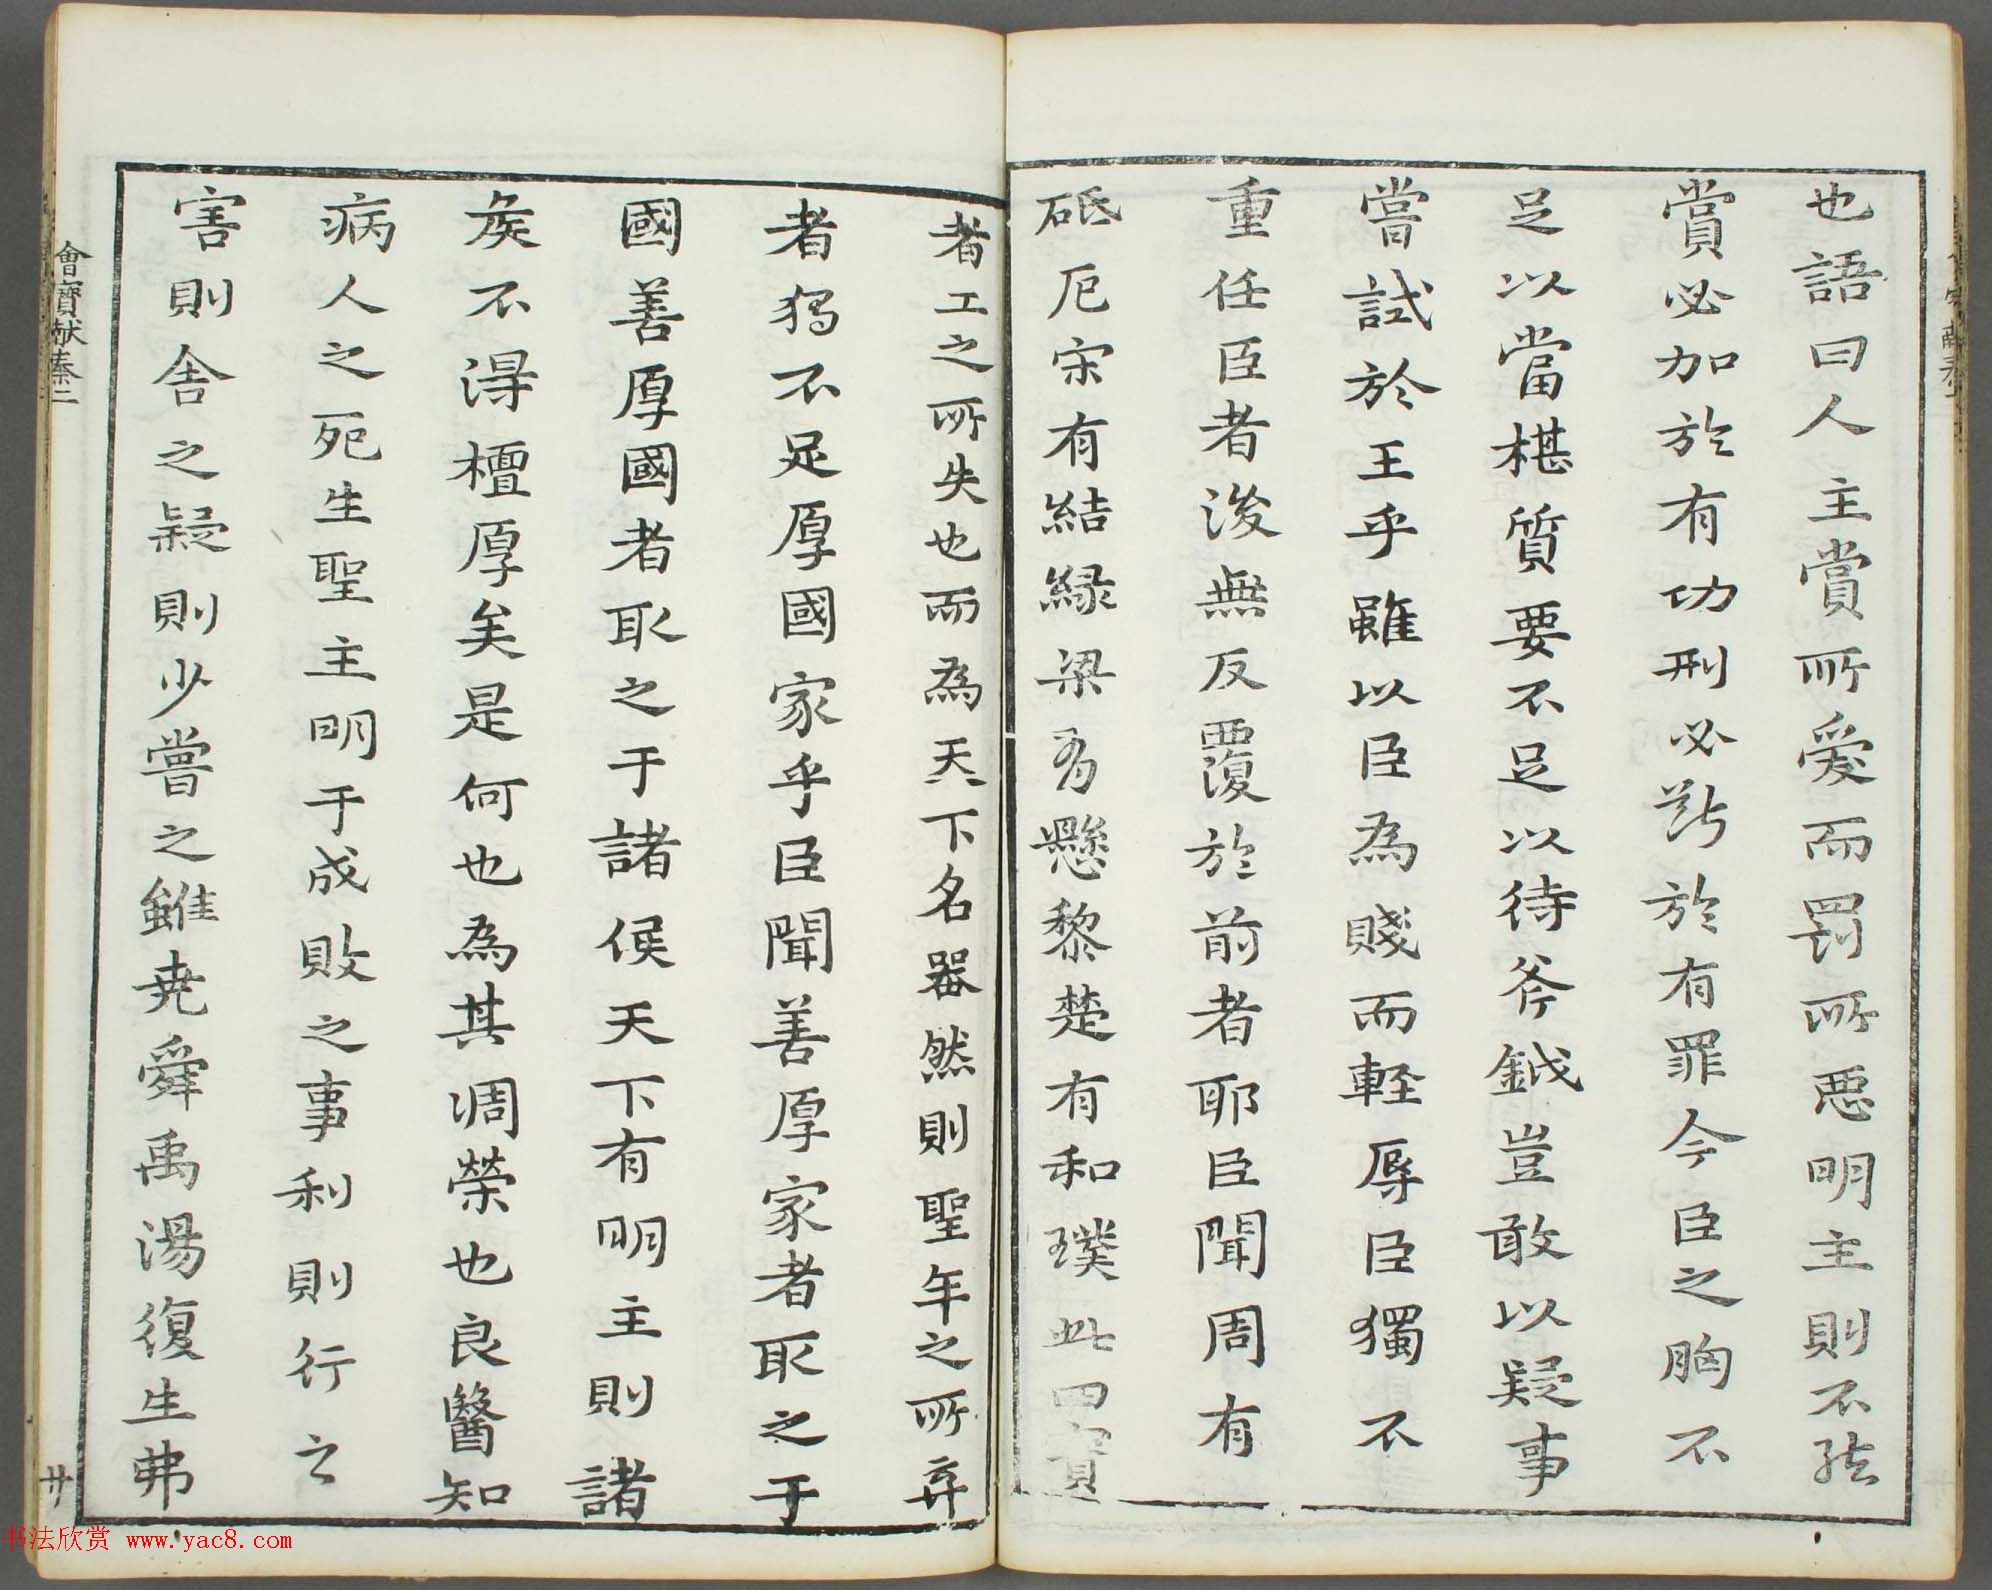 也語曰人主賞所愛而罰所惡明主則不然
賞必加於有功刑必斷於有罪今臣之胸不
足以當椹質要不足以待斧鉞豈敢以疑事
嘗試於王乎雖以臣為賤而輕辱臣獨不
重任臣者後無反覆於前者耶臣聞周有
砥厄宋有結緑梁有懸黎楚有和璞此四寳
者工之所失也而為天下名器然則聖王之所弃
者獨不足厚國家乎臣聞善厚家者取之于
國善厚國者取之于諸侯天下有明主則諸
侯不得檀厚矣是何也為其凋榮也良醫知
病人之死生聖主明于成敗之事利則行之
害則舎之疑則少嘗之雖尭舜禹湯復生弗
會寳献秦二
廿
书法欣赏 www.yac8.com